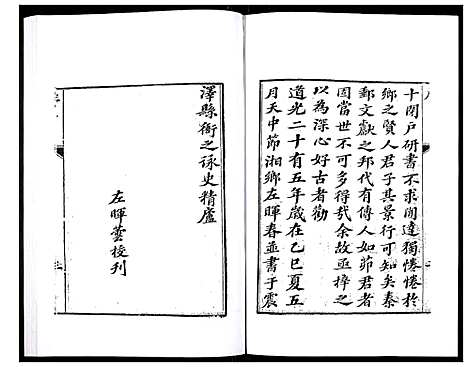 十閉戶研書不求聞達獨惓惓於
鄉之賢人君子其景行可知矣秦
郵文獻之邦代有傳人如茆君者
固當世不可多得哉余故亟梓之
以為深心好古者勸
道光二十有五年歲在乙巳夏五
月天中節湘鄉左暉春並書于震
澤縣衙之詠史精廬
左暉蕓校刊